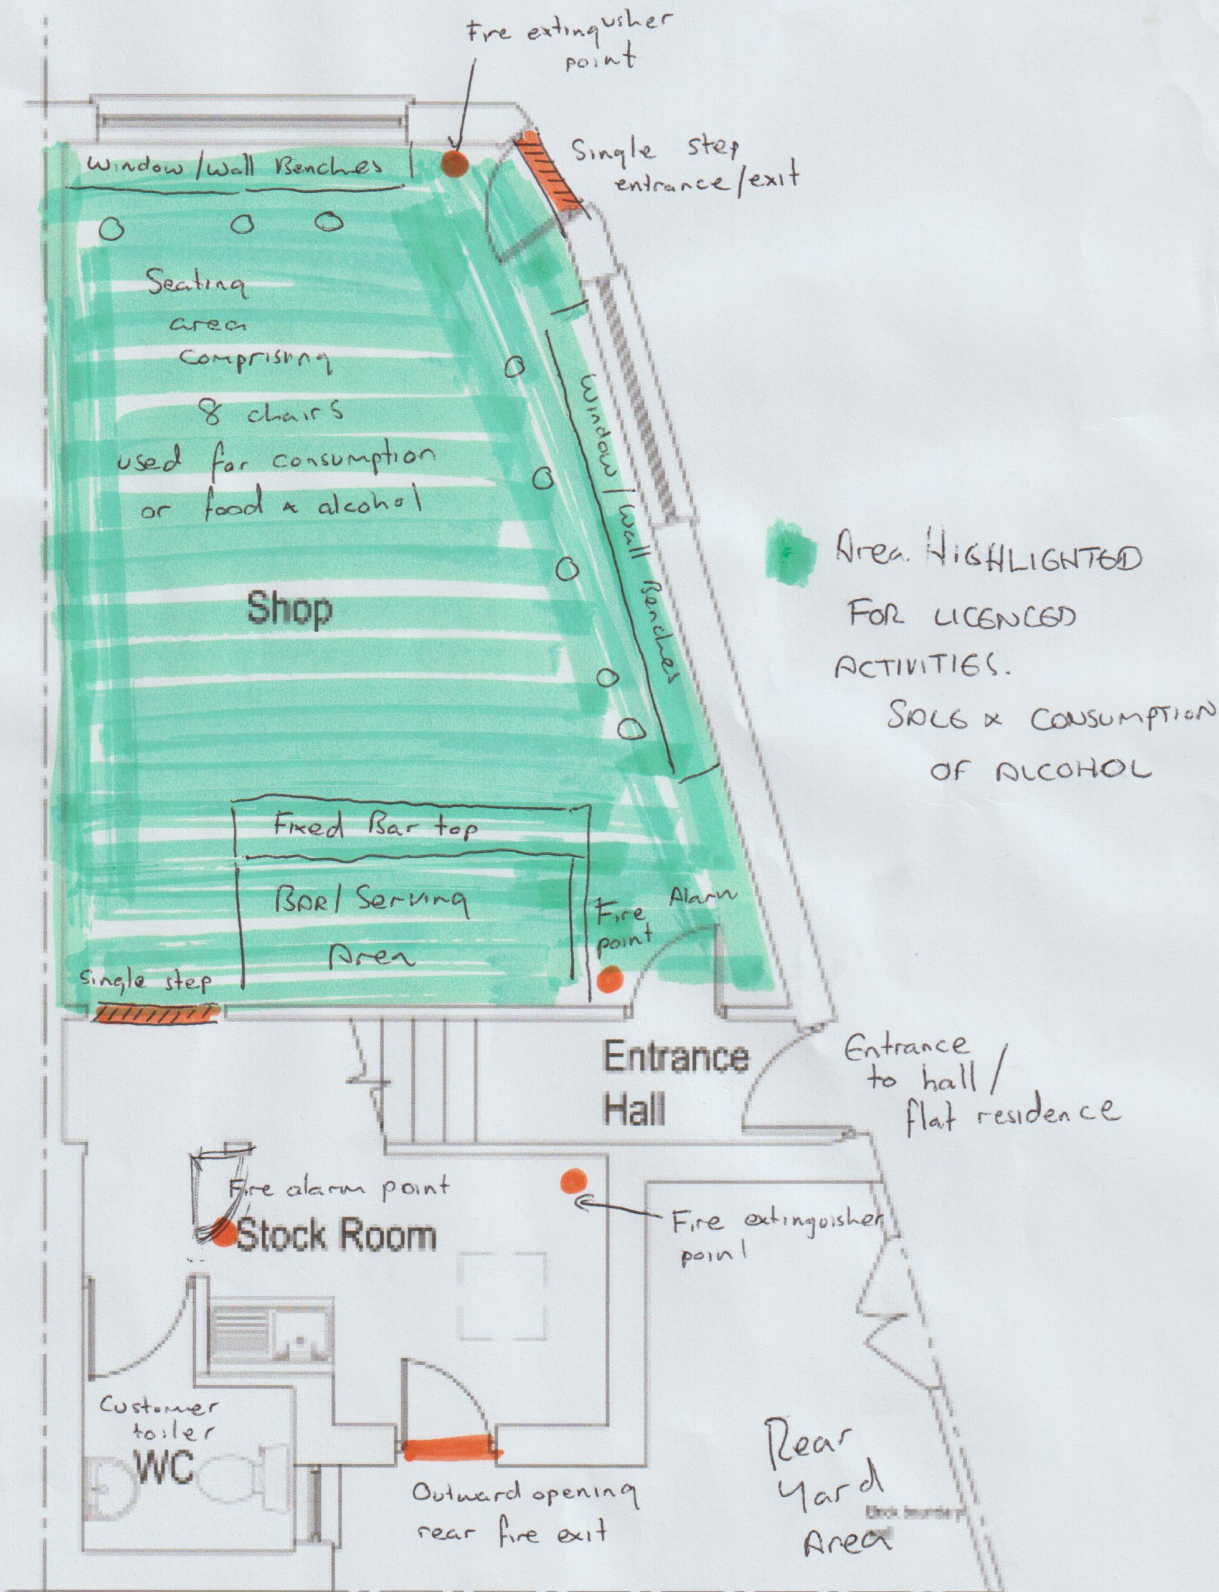 Fire extinguisher
point
Single step
entrance/exit
Window/Wall Benches
Seating
area
comprising
8 chairs
used for consumption
or food & alcohol
Window/Wall Benches
Shop
Area HIGHLIGHTED
FOR LICENCED
ACTIVITIES.
SALE & CONSUMPTION
OF ALCOHOL
Fixed Bar top
BAR/ Serving
Area
Fire Alarm
point
Single step
Entrance
Hall
Entrance
to hall/
flat residence
Fire alarm point
Stock Room
Fire extinguisher
point
Customer
toiler
WC
Outward opening
rear fire exit
Rear
Yard
Area